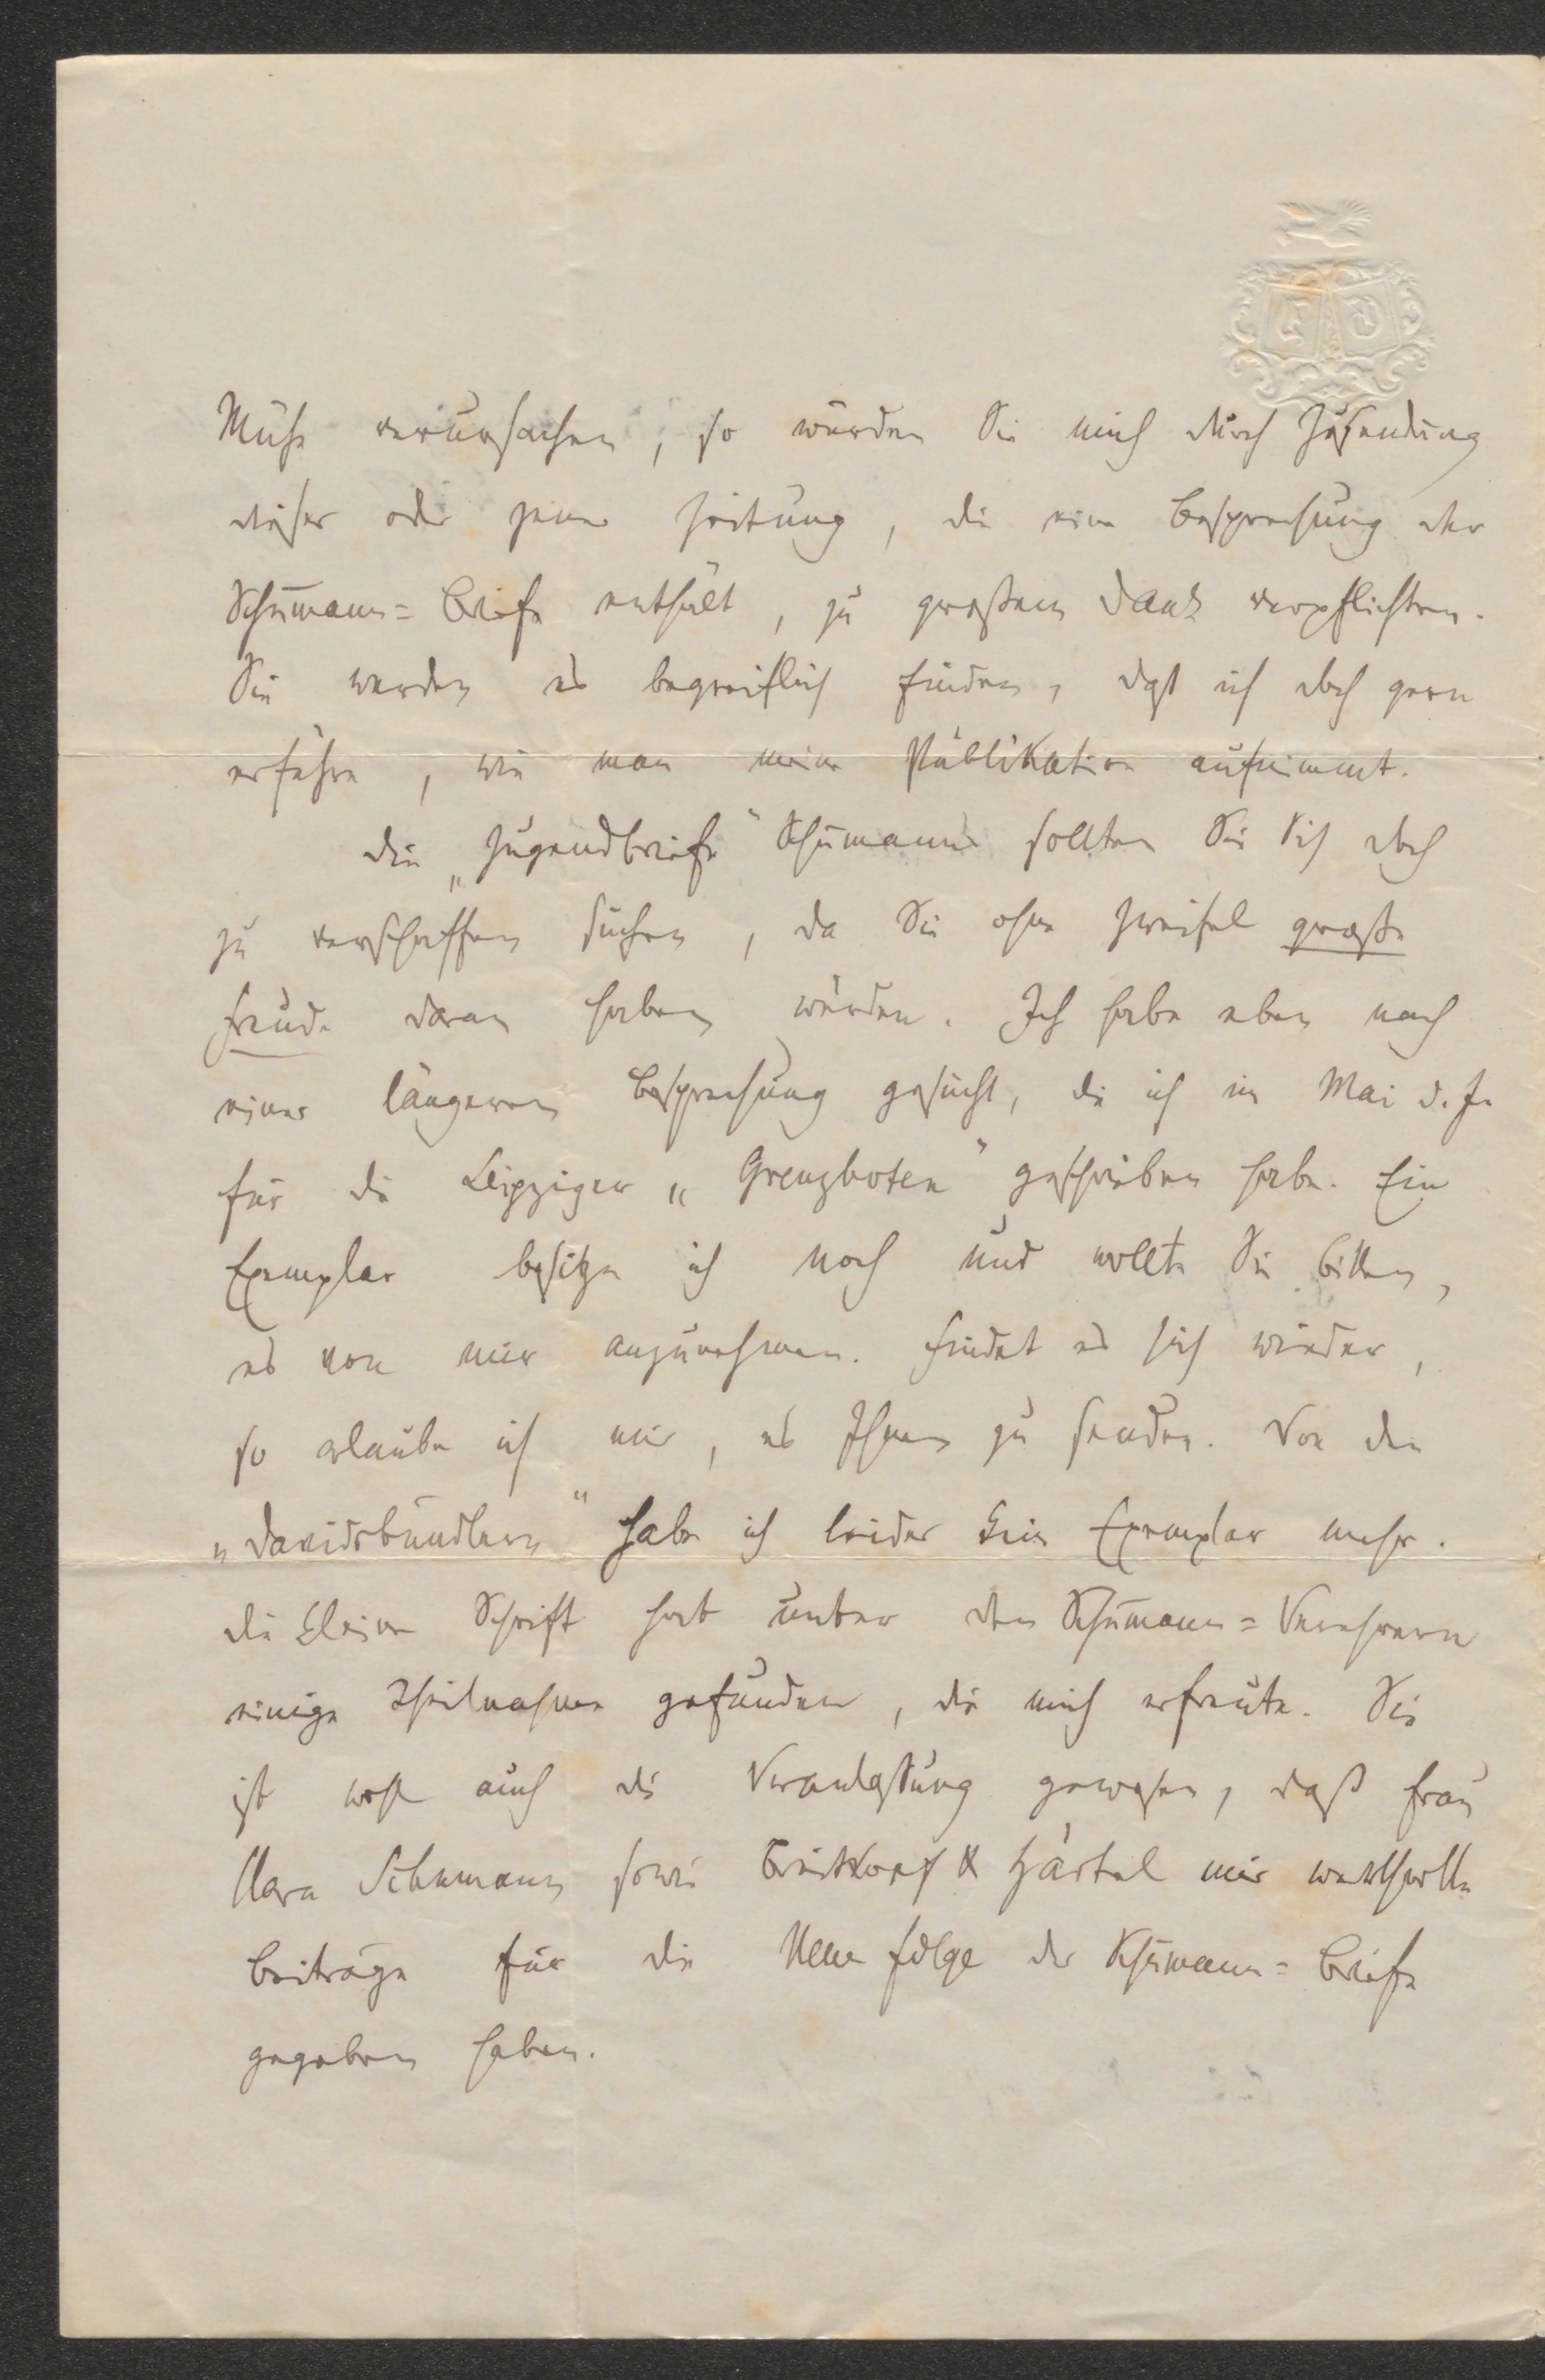 Mühe verursachen, so würden Sie mich durch Zusendung
dieser oder jener Zeitung, die eine Besprechung der
Schumann=Briefe enthält, zu großem Dank verpflichten.
Sie werden es begreiflich finden, daß ich doch gern
erführe, wie man meine Publikation aufnimmt.
Die „Jugendbriefe“ Schumanns sollten Sie Sich doch
zu verschaffen suchen, da Sie ohne Zweifel große
Freude daran haben würden. Ich habe eben nach
einer längeren Besprechung gesucht, die ich im Mai d. J.
für die Leipziger „Grenzboten“ geschrieben habe. Ein
Exemplar besitze ich noch und wollte Sie bitten,
es von mir anzunehmen. Findet es sich wieder,
so erlaube ich mir, es Ihnen zu senden. Von den
„Davidsbündlern“ habe ich leider kein Exemplar mehr.
Die kleine Schrift hat unter den Schumann=Verehrern
einige Theilnahme gefunden, die mich erfreute. Sie
ist wohl auch die Veranlaßung gewesen, daß Frau
Clara Schumann sowie Breitkopf & Härtel mir werthvolle
Beiträge für die Neue Folge der Schumann=Briefe
gegeben haben.